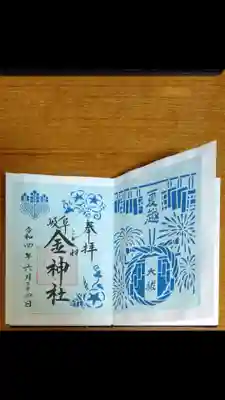 夏越
大祓
奉拝
岐阜
金神社
令和四年六月三十日